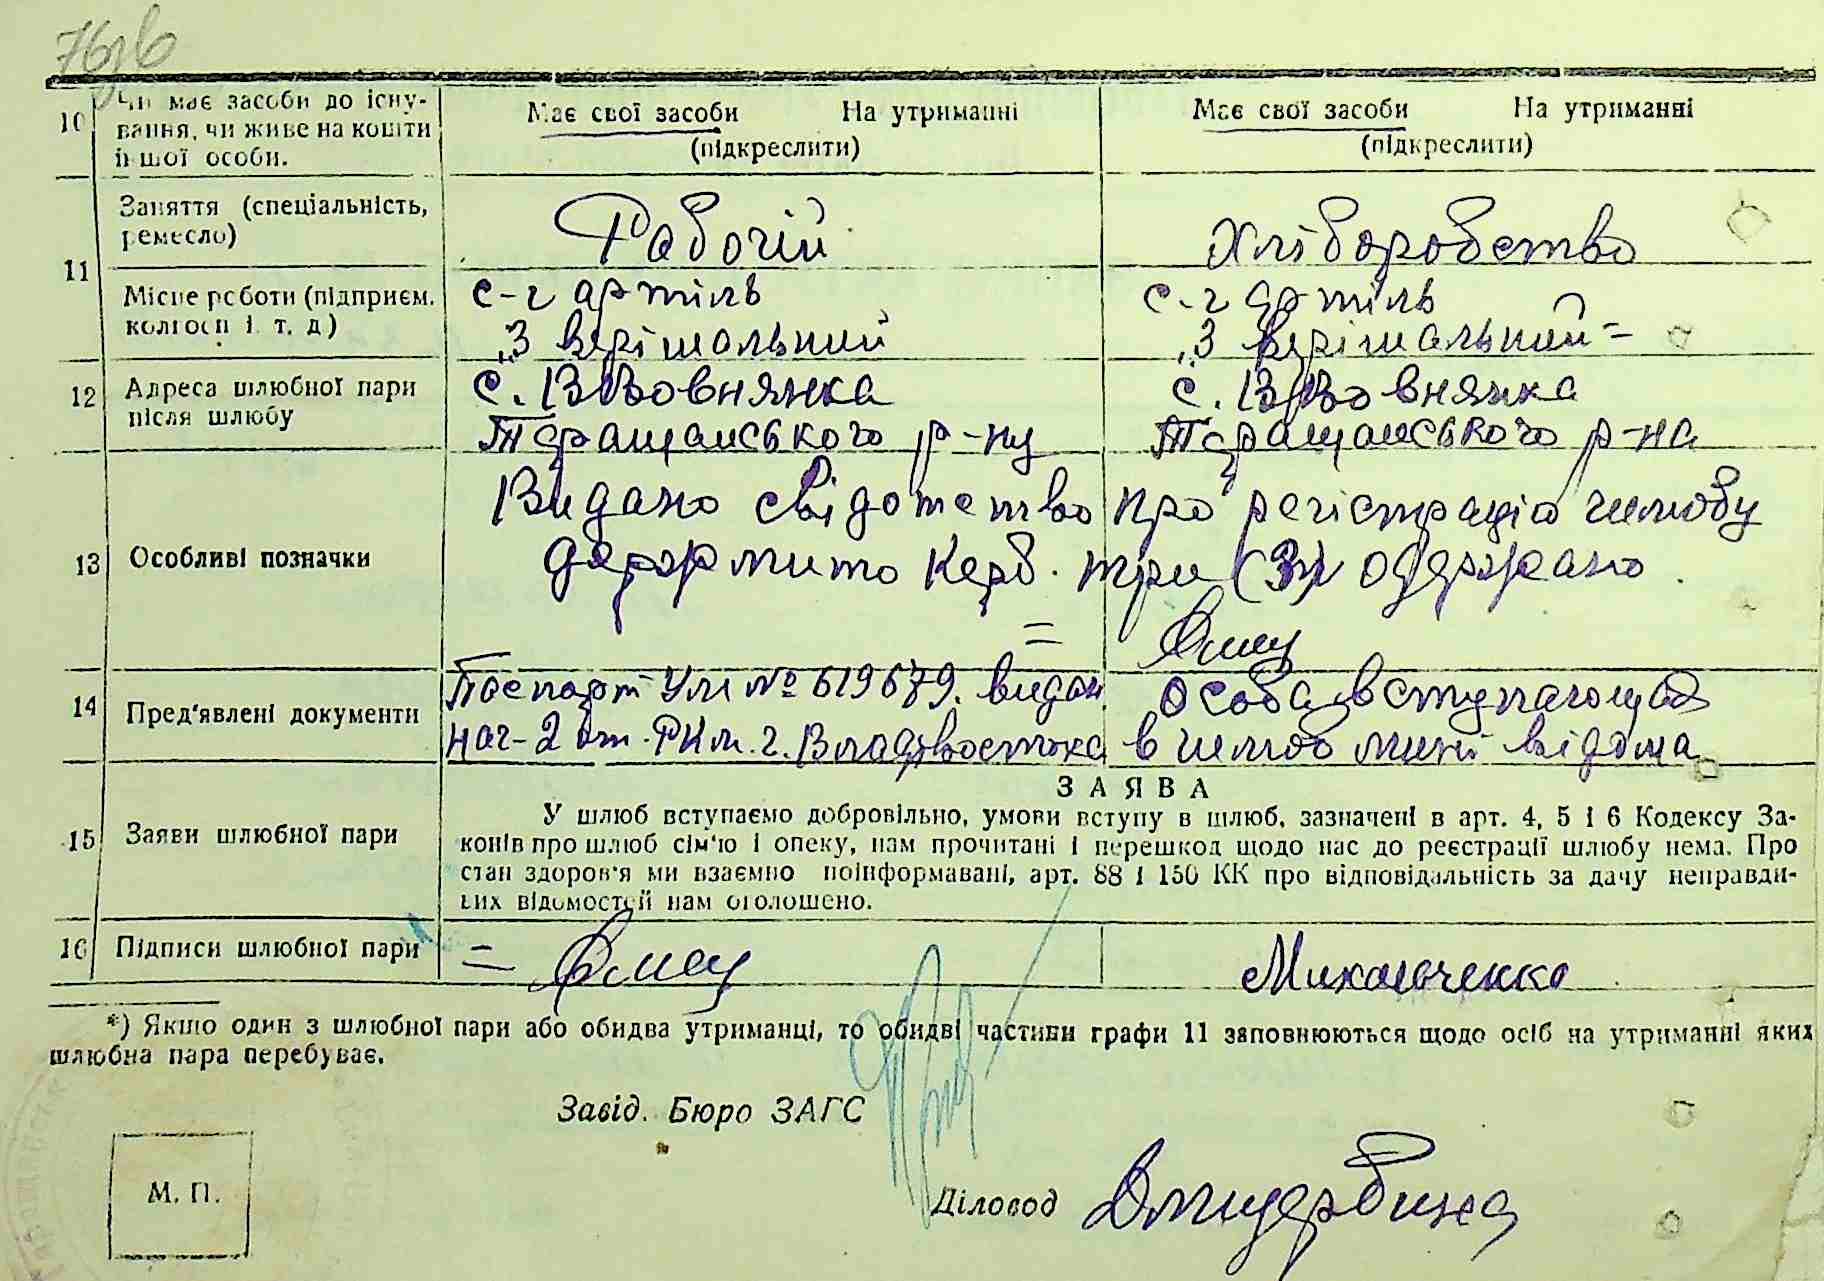 76зв
10 Чи має засоби до існу-
вання, чи живе на кошти
іншої особи.
Має свої засоби На утриманні
(підкреслити)
Має свої засоби На утриманні
(підкреслити)
11 Заняття (спеціальність,
ремесло)
Рабочій
Хліборобство
Місце роботи (підприєм.
колгосп і. т. д)
с-г артіль
"3 Верішальний
с-г артіль
"3 Верішальний =
12 Адреса шлюбної пари
після шлюбу
с. ВВовнянка
Таращанського р-ну
с. ВВовнянка
Таращанського р-на
13 Особливі позначки
Видано свідотство про регістрацію шлюбу
держ мито Карб. три (3) одержано.
=
14 Пред'явлені документи
Паспорт УМ № 619679. видан
нач-2 от. РКМ. г. Владівостока
особа вступающая
в шлюб мині відома
15 Заяви шлюбної пари
ЗАЯВА
У шлюб вступаємо добровільно, умови вступу в шлюб, зазначені в арт. 4, 5 і 6 Кодексу За-
конів про шлюб сім'ю і опеку, нам прочитані і перешкод щодо нас до реєстрації шлюбу нема. Про
стан здоров'я ми взаємно поінформавані, арт. 88 і 150 КК про відповідальність за дачу неправди-
вих відомостей нам оголошено.
16 Підписи шлюбної пари
=
Михальченко
*) Якшо один з шлюбної пари або обидва утриманці, то обидві частини графи 11 заповнюються щодо осіб на утриманні яких
шлюбна пара перебуває.
Завід. Бюро ЗАГС
М. П.
Діловод